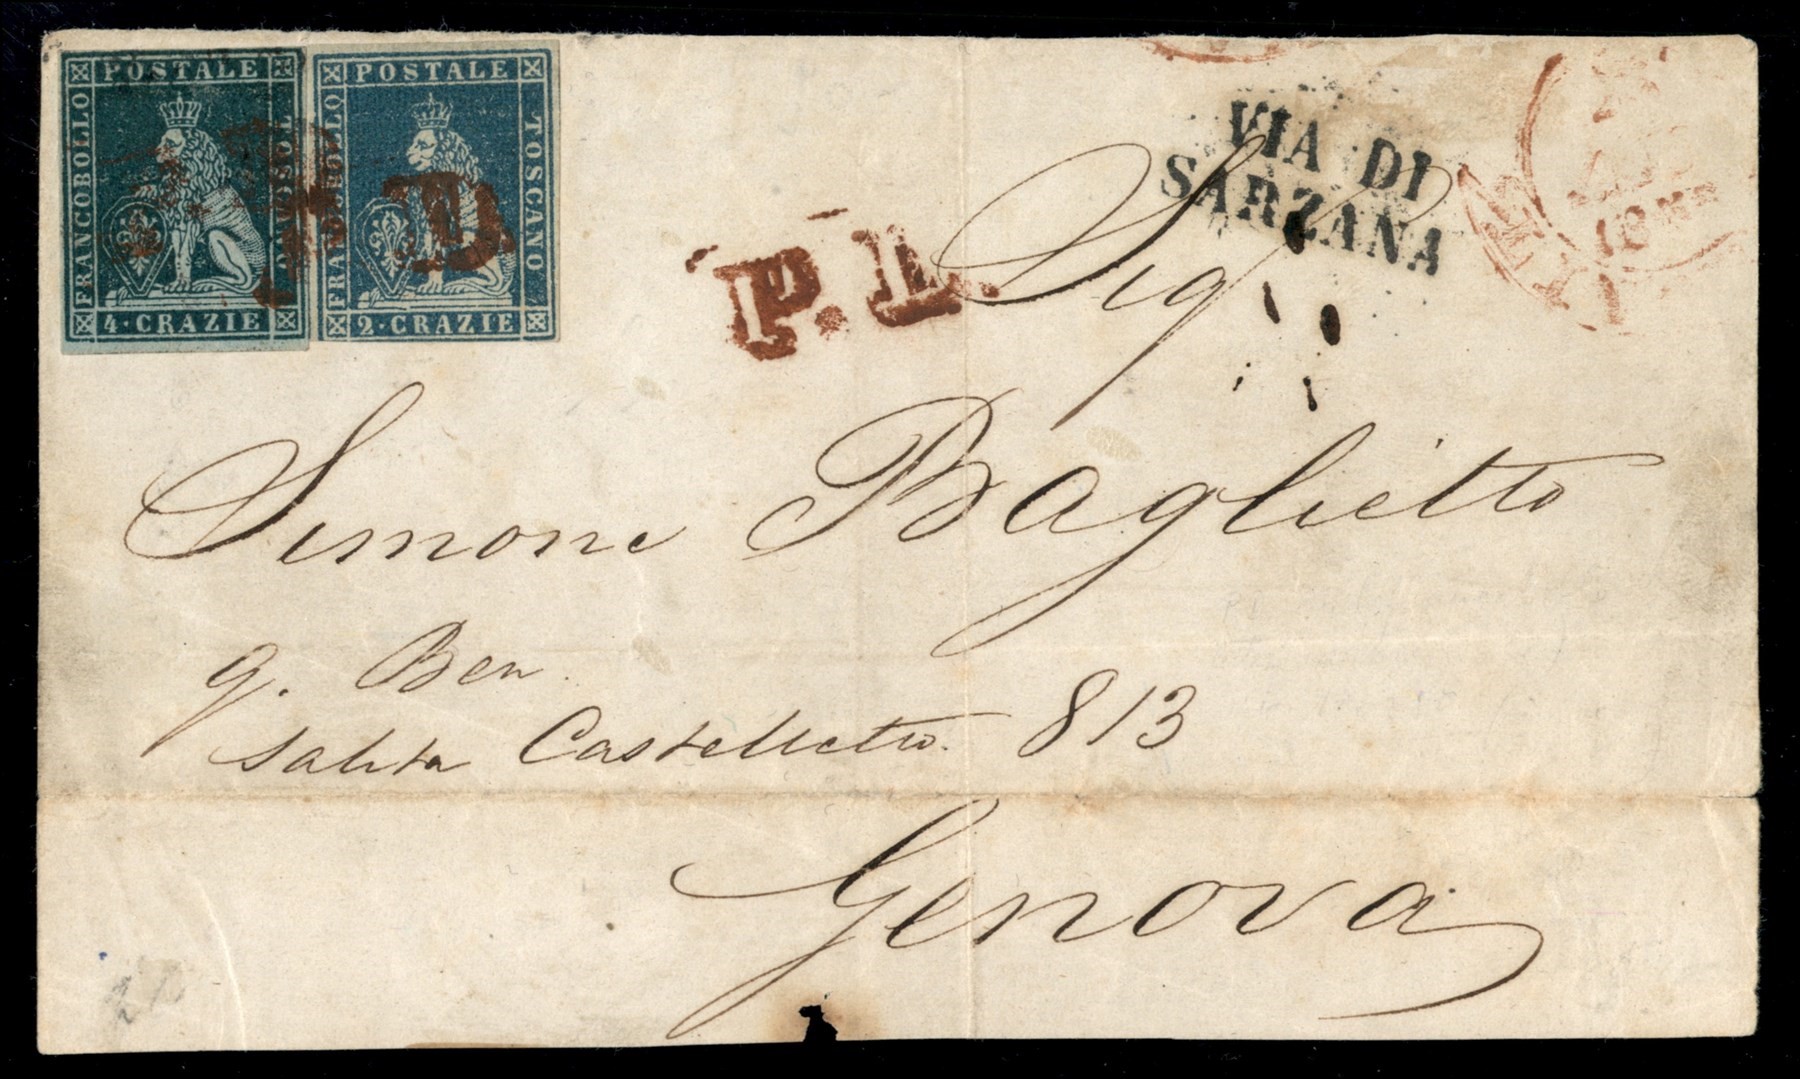 POSTALE
FRANCOBOLLO
TOSCANO
4·CRAZIE
POSTALE
FRANCOBOLLO
TOSCANO
2·CRAZIE
P.D
P.L.
VIA DI
SARZANA
18
Sig.r
Simone Baglietto
q. Ben.
Salita Castelletto. 813
Genova